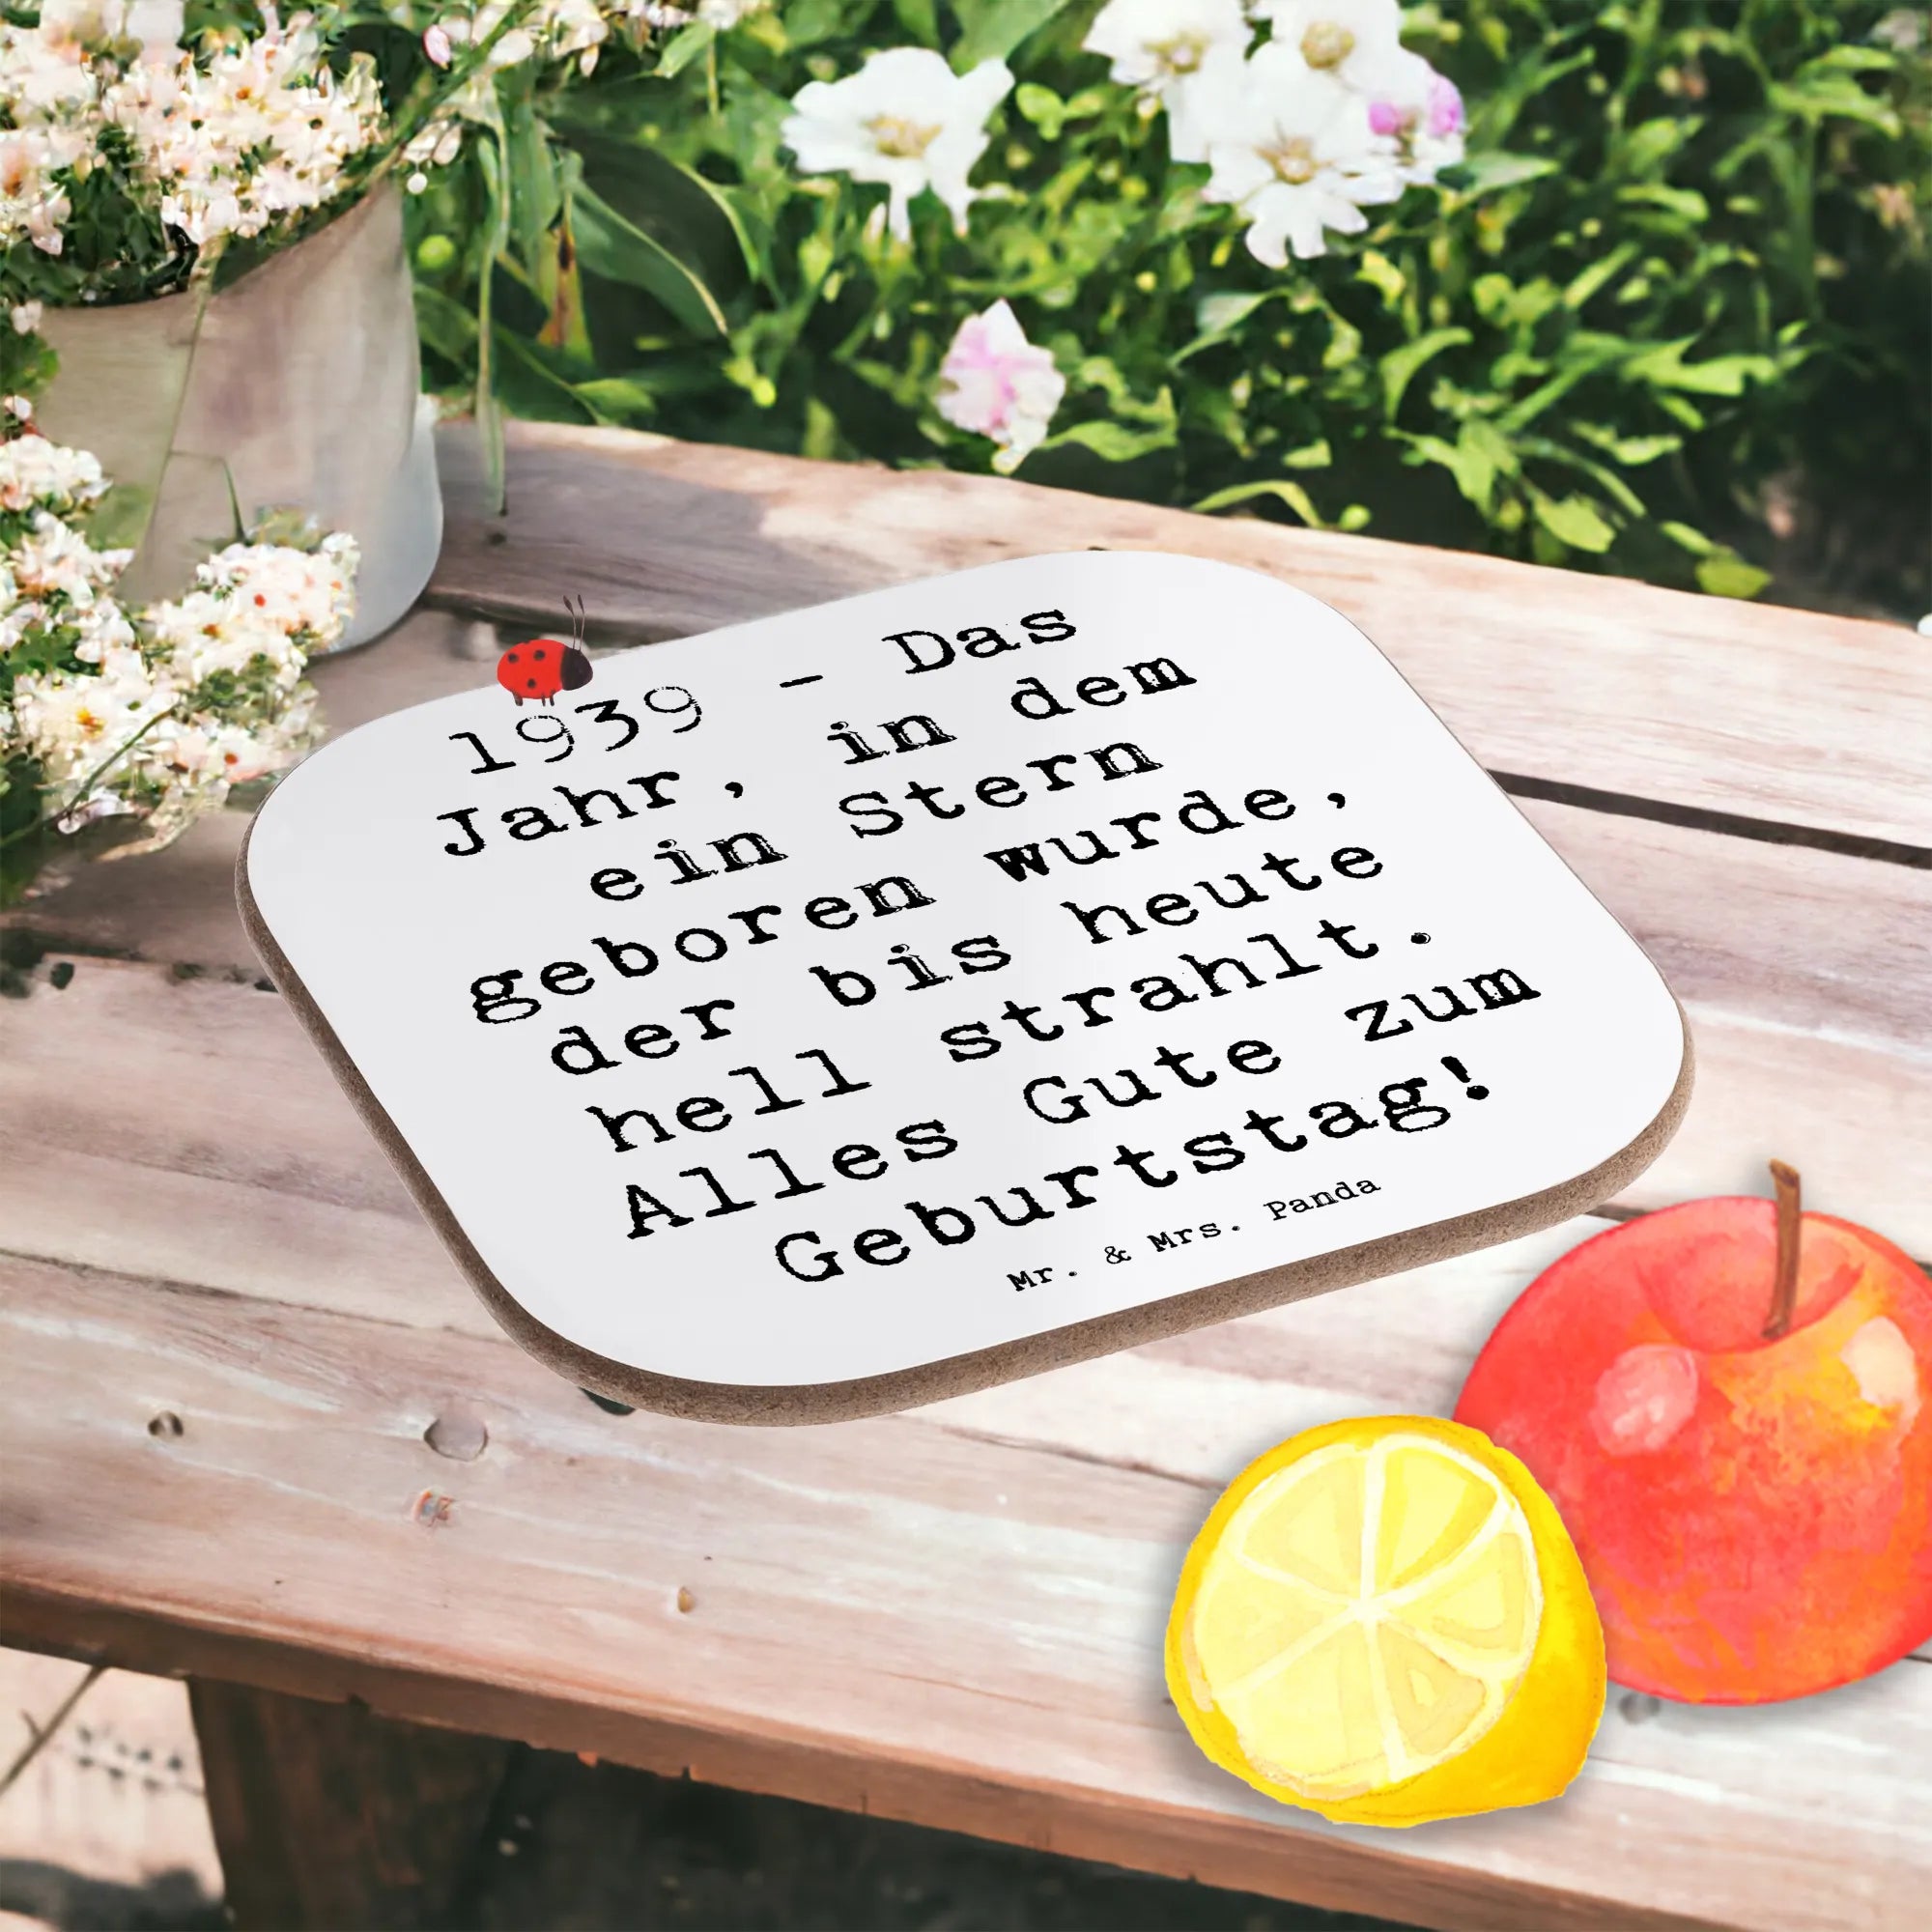 1939 - Das
Jahr, in dem
ein Stern
geboren wurde,
der bis heute
hell strahlt.
Alles Gute zum
Geburtstag!
Mr. & Mrs. Panda